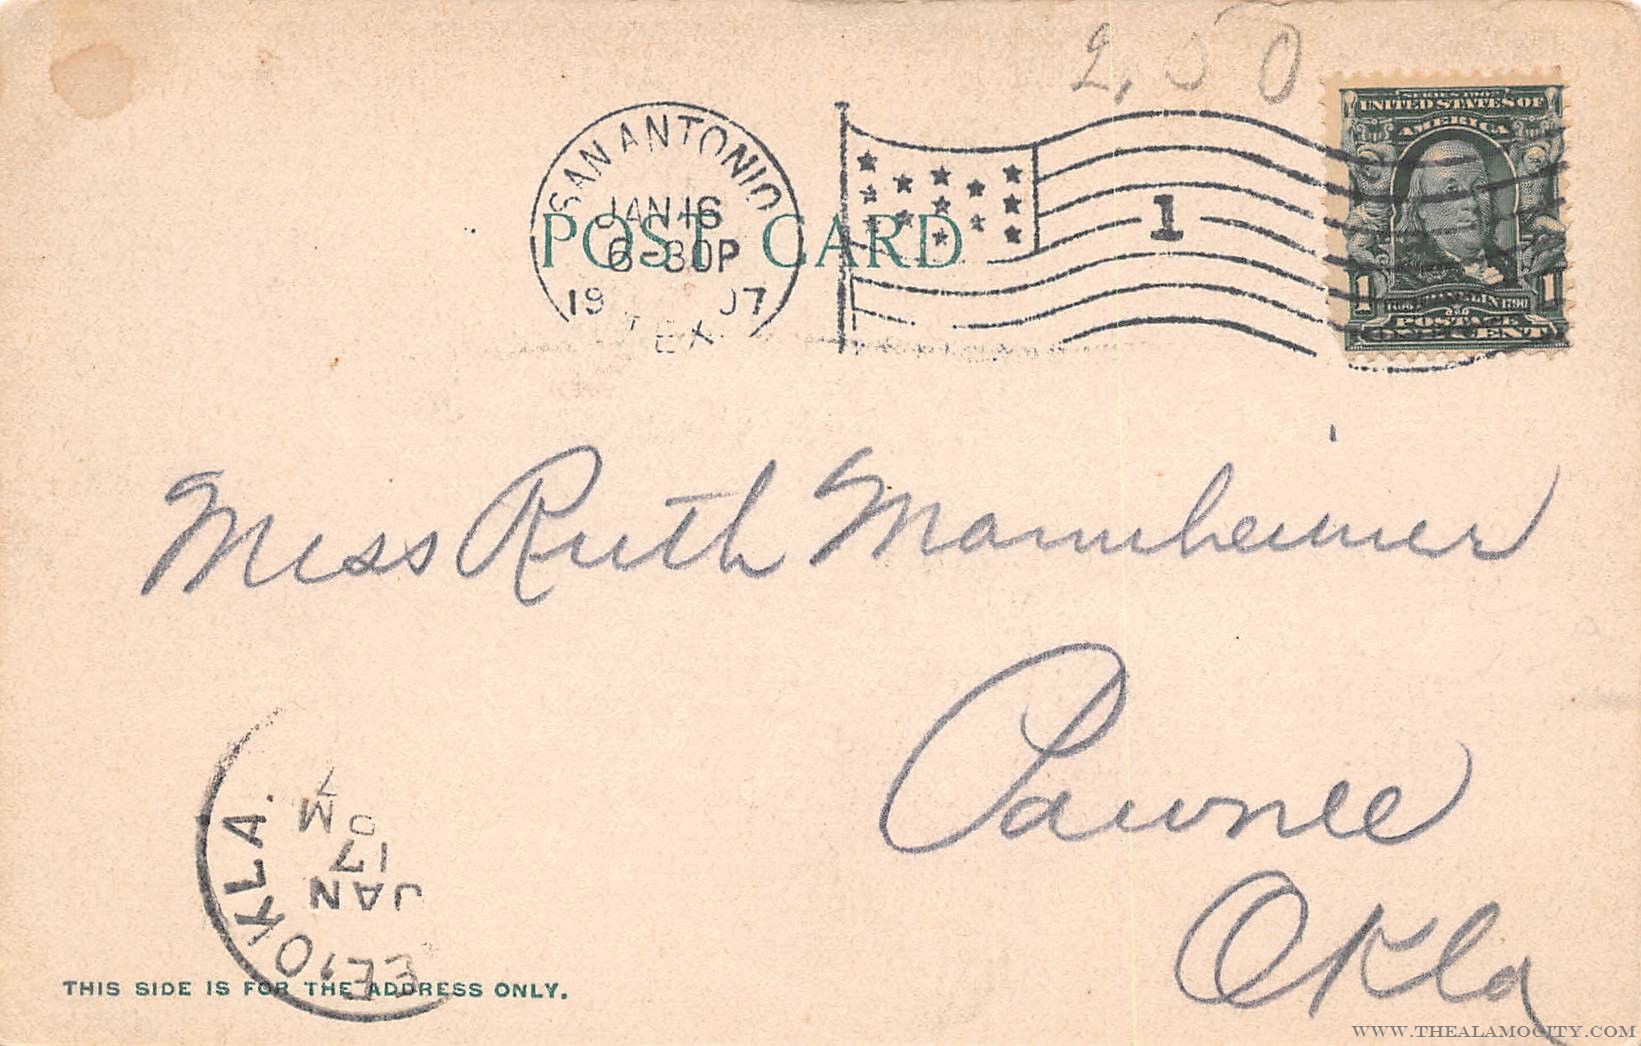 2,50
SERIES 1902
UNITED STATES OF
AMERICA
1 FRANKLIN 1790 1
POSTAGE
ONE CENT
SAN ANTONIO
JAN 16
6-30P
19 07
TEX.
1
POST CARD
Miss Ruth Mannheimer
Pawnee
Okla
EE, OKLA.
JAN
17
M
THIS SIDE IS FOR THE ADDRESS ONLY.
WWW.THEALAMOCITY.COM